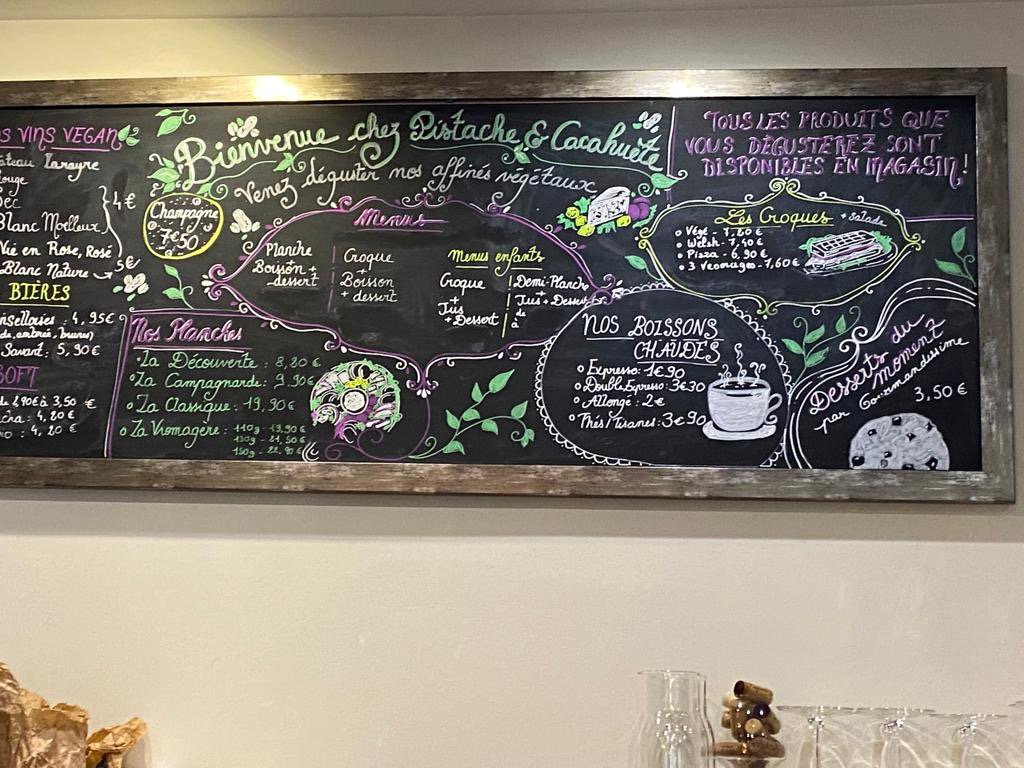 VINS VEGAN
Rouge
Blanc Moelleux
4€
Vie en Rose, Rosé
Blanc Nature → 5€
BIÈRES
4,95€
ambrée, brunes)
Savant : 5,90€
SOFT
de 2,90€ à 3,50 €
4,20 €
4,20 €
Bienvenue chez Pistache & Cacahuète
Venez déguster nos affinés végétaux
Champagne
7€50
Menus
Planche
+
Boisson +
dessert
Croque
+
Boisson
+ dessert
Menus enfants
Croque
+
Jus
+ Dessert
Demi-Planche
+
Jus + Dessert
de
à
Nos Planches
La Découverte : 8,80 €
La Campagnarde : 9,90€
La Classique : 19,90€
La Vromagère : 110g - 19,90€
130g - 21,50€
150g - 22,90€
NOS BOISSONS
CHAUDES
Expresso : 1€90
Double Expresso : 3€30
Allongé : 2€
Thés/Tisanes : 3€90
TOUS LES PRODUITS QUE
VOUS DÉGUSTEREZ SONT
DISPONIBLES EN MAGASIN !
Les Croques + salade
Végé - 7,20€
Welsh - 7,40€
Pizza - 6,90€
3 Vromages - 7,60€
Desserts du
moment
par Gourmandissime
3,50 €